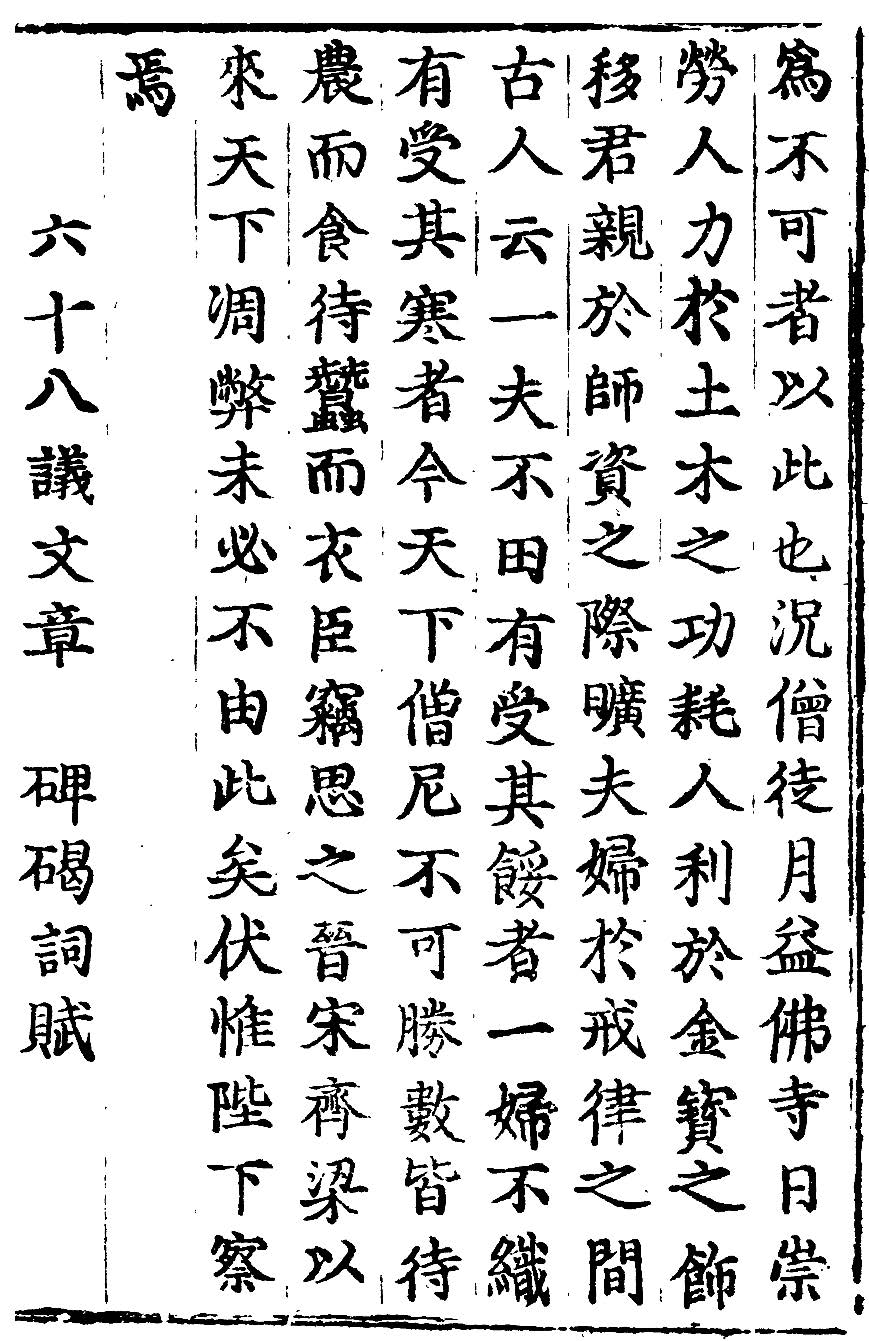 爲不可者以此也況僧徒月益佛寺日崇
勞人力於土木之功耗人利於金寶之飾
移君親於師資之際曠夫婦於戒律之間
古人云一夫不田有受其餒者一婦不織
有受其寒者今天下僧尼不可勝數皆待
農而食待蠶而衣臣竊思之晉宋齊梁以
來天下凋弊未必不由此矣伏惟陛下察
焉
六十八議文章 碑碣詞賦